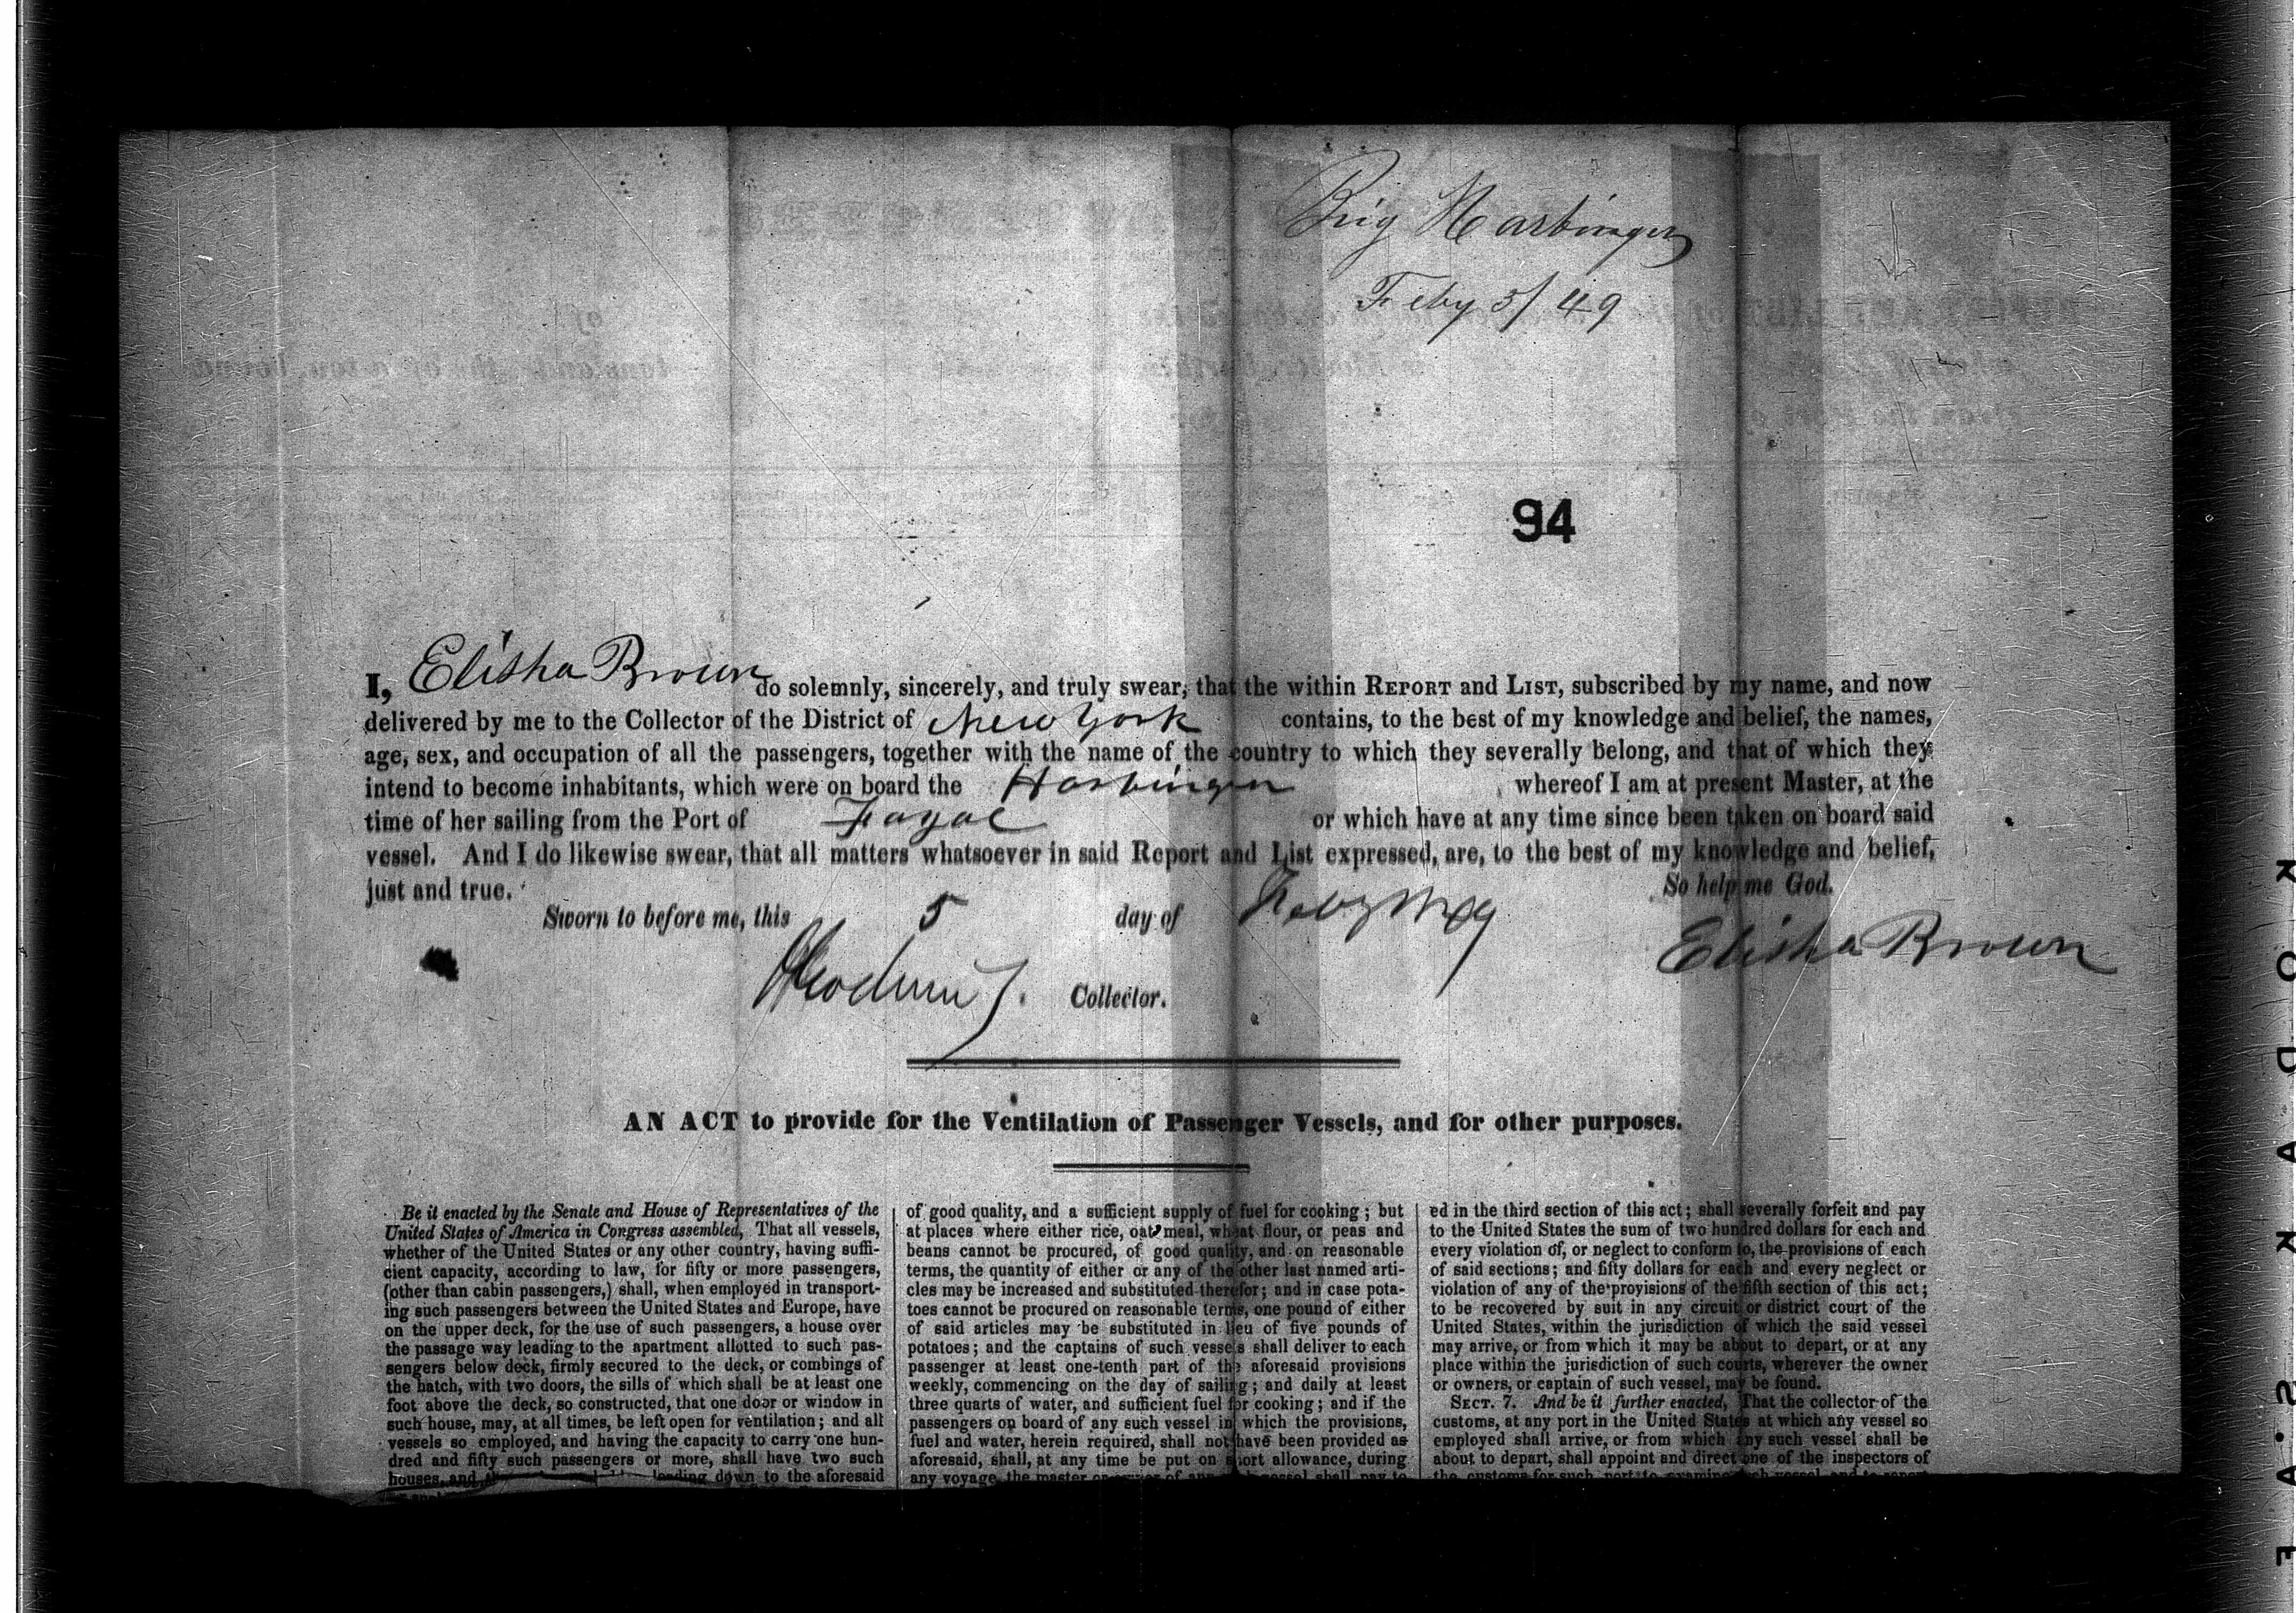 Brig Harbinger
Feby 3/49
94
I, Elisha Brown do solemnly, sincerely, and truly swear, that the within REPORT and LIST, subscribed by my name, and now
delivered by me to the Collector of the District of New York contains, to the best of my knowledge and belief, the names,
age, sex, and occupation of all the passengers, together with the name of the country to which they severally belong, and that of which they
intend to become inhabitants, which were on board the Harbinger whereof I am at present Master, at the
time of her sailing from the Port of Fayal or which have at any time since been taken on board said
vessel. And I do likewise swear, that all matters whatsoever in said Report and List expressed, are, to the best of my knowledge and belief,
just and true. So help me God.
Sworn to before me, this 5 day of Feby
Elisha Brown
Collector.
AN ACT to provide for the Ventilation of Passenger Vessels, and for other purposes.
Be it enacted by the Senate and House of Representatives of the
United States of America in Congress assembled, That all vessels,
whether of the United States or any other country, having suffi-
cient capacity, according to law, for fifty or more passengers,
(other than cabin passengers,) shall, when employed in transport-
ing such passengers between the United States and Europe, have
on the upper deck, for the use of such passengers, a house over
the passage way leading to the apartment allotted to such pas-
sengers below deck, firmly secured to the deck, or combings of
the hatch, with two doors, the sills of which shall be at least one
foot above the deck, so constructed, that one door or window in
such house, may, at all times, be left open for ventilation; and all
vessels so employed, and having the capacity to carry one hun-
dred and fifty such passengers or more, shall have two such
houses, and leading down to the aforesaid
of good quality, and a sufficient supply of fuel for cooking; but
at places where either rice, oatmeal, wheat flour, or peas and
beans cannot be procured, of good quality, and on reasonable
terms, the quantity of either or any of the other last named arti-
cles may be increased and substituted therefor; and in case pota-
toes cannot be procured on reasonable terms, one pound of either
of said articles may be substituted in lieu of five pounds of
potatoes; and the captains of such vessels shall deliver to each
passenger at least one-tenth part of the aforesaid provisions
weekly, commencing on the day of sailing; and daily at least
three quarts of water, and sufficient fuel for cooking; and if the
passengers on board of any such vessel in which the provisions,
fuel and water, herein required, shall not have been provided as
aforesaid, shall, at any time be put on short allowance, during
any voyage, the master or owner of any such vessel shall pay to
ed in the third section of this act; shall severally forfeit and pay
to the United States the sum of two hundred dollars for each and
every violation of, or neglect to conform to, the provisions of each
of said sections; and fifty dollars for each and every neglect or
violation of any of the provisions of the fifth section of this act;
to be recovered by suit in any circuit or district court of the
United States, within the jurisdiction of which the said vessel
may arrive, or from which it may be about to depart, or at any
place within the jurisdiction of such courts, wherever the owner
or owners, or captain of such vessel, may be found.
SECT. 7. And be it further enacted, That the collector of the
customs, at any port in the United States at which any vessel so
employed shall arrive, or from which any such vessel shall be
about to depart, shall appoint and direct one of the inspectors of
the customs for such port to examine such vessel, and to report